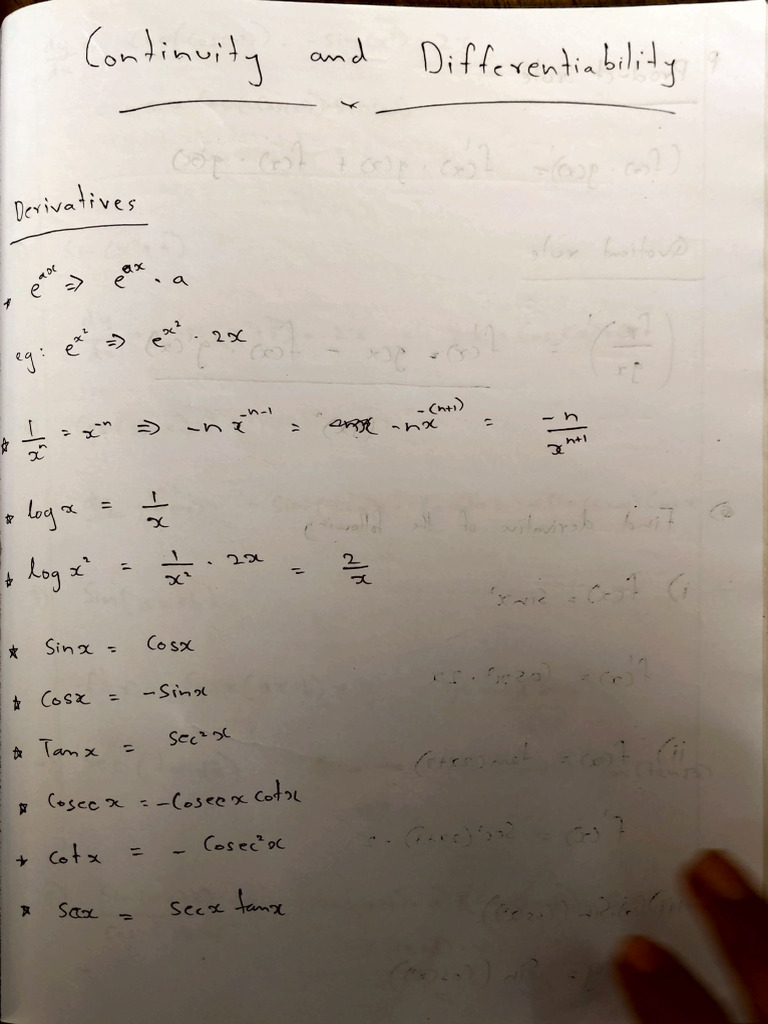 Continuity and Differentiability
Derivatives
* e^ax ⇒ e^ax · a
eg: e^x² ⇒ e^x² · 2x
* 1/x^n = x^-n ⇒ -n x^-n-1 = -n x^-(n+1) = -n/x^n+1
* log x = 1/x
* log x² = 1/x² · 2x = 2/x
* Sinx = Cosx
* Cosx = -Sinx
* Tanx = Sec²x
* Cosec x = -Cosec x cotx
* cotx = - Cosec²x
* secx = secx tanx